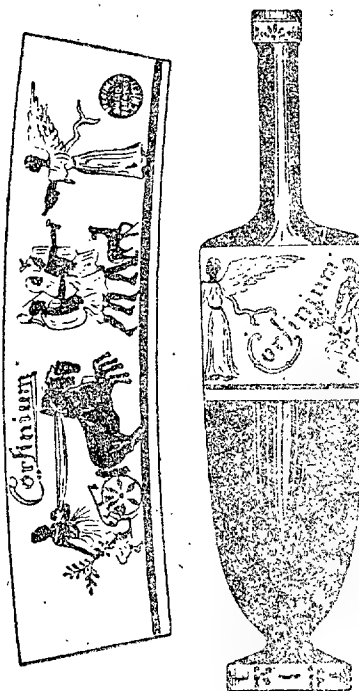 Corfinium
Corfinium